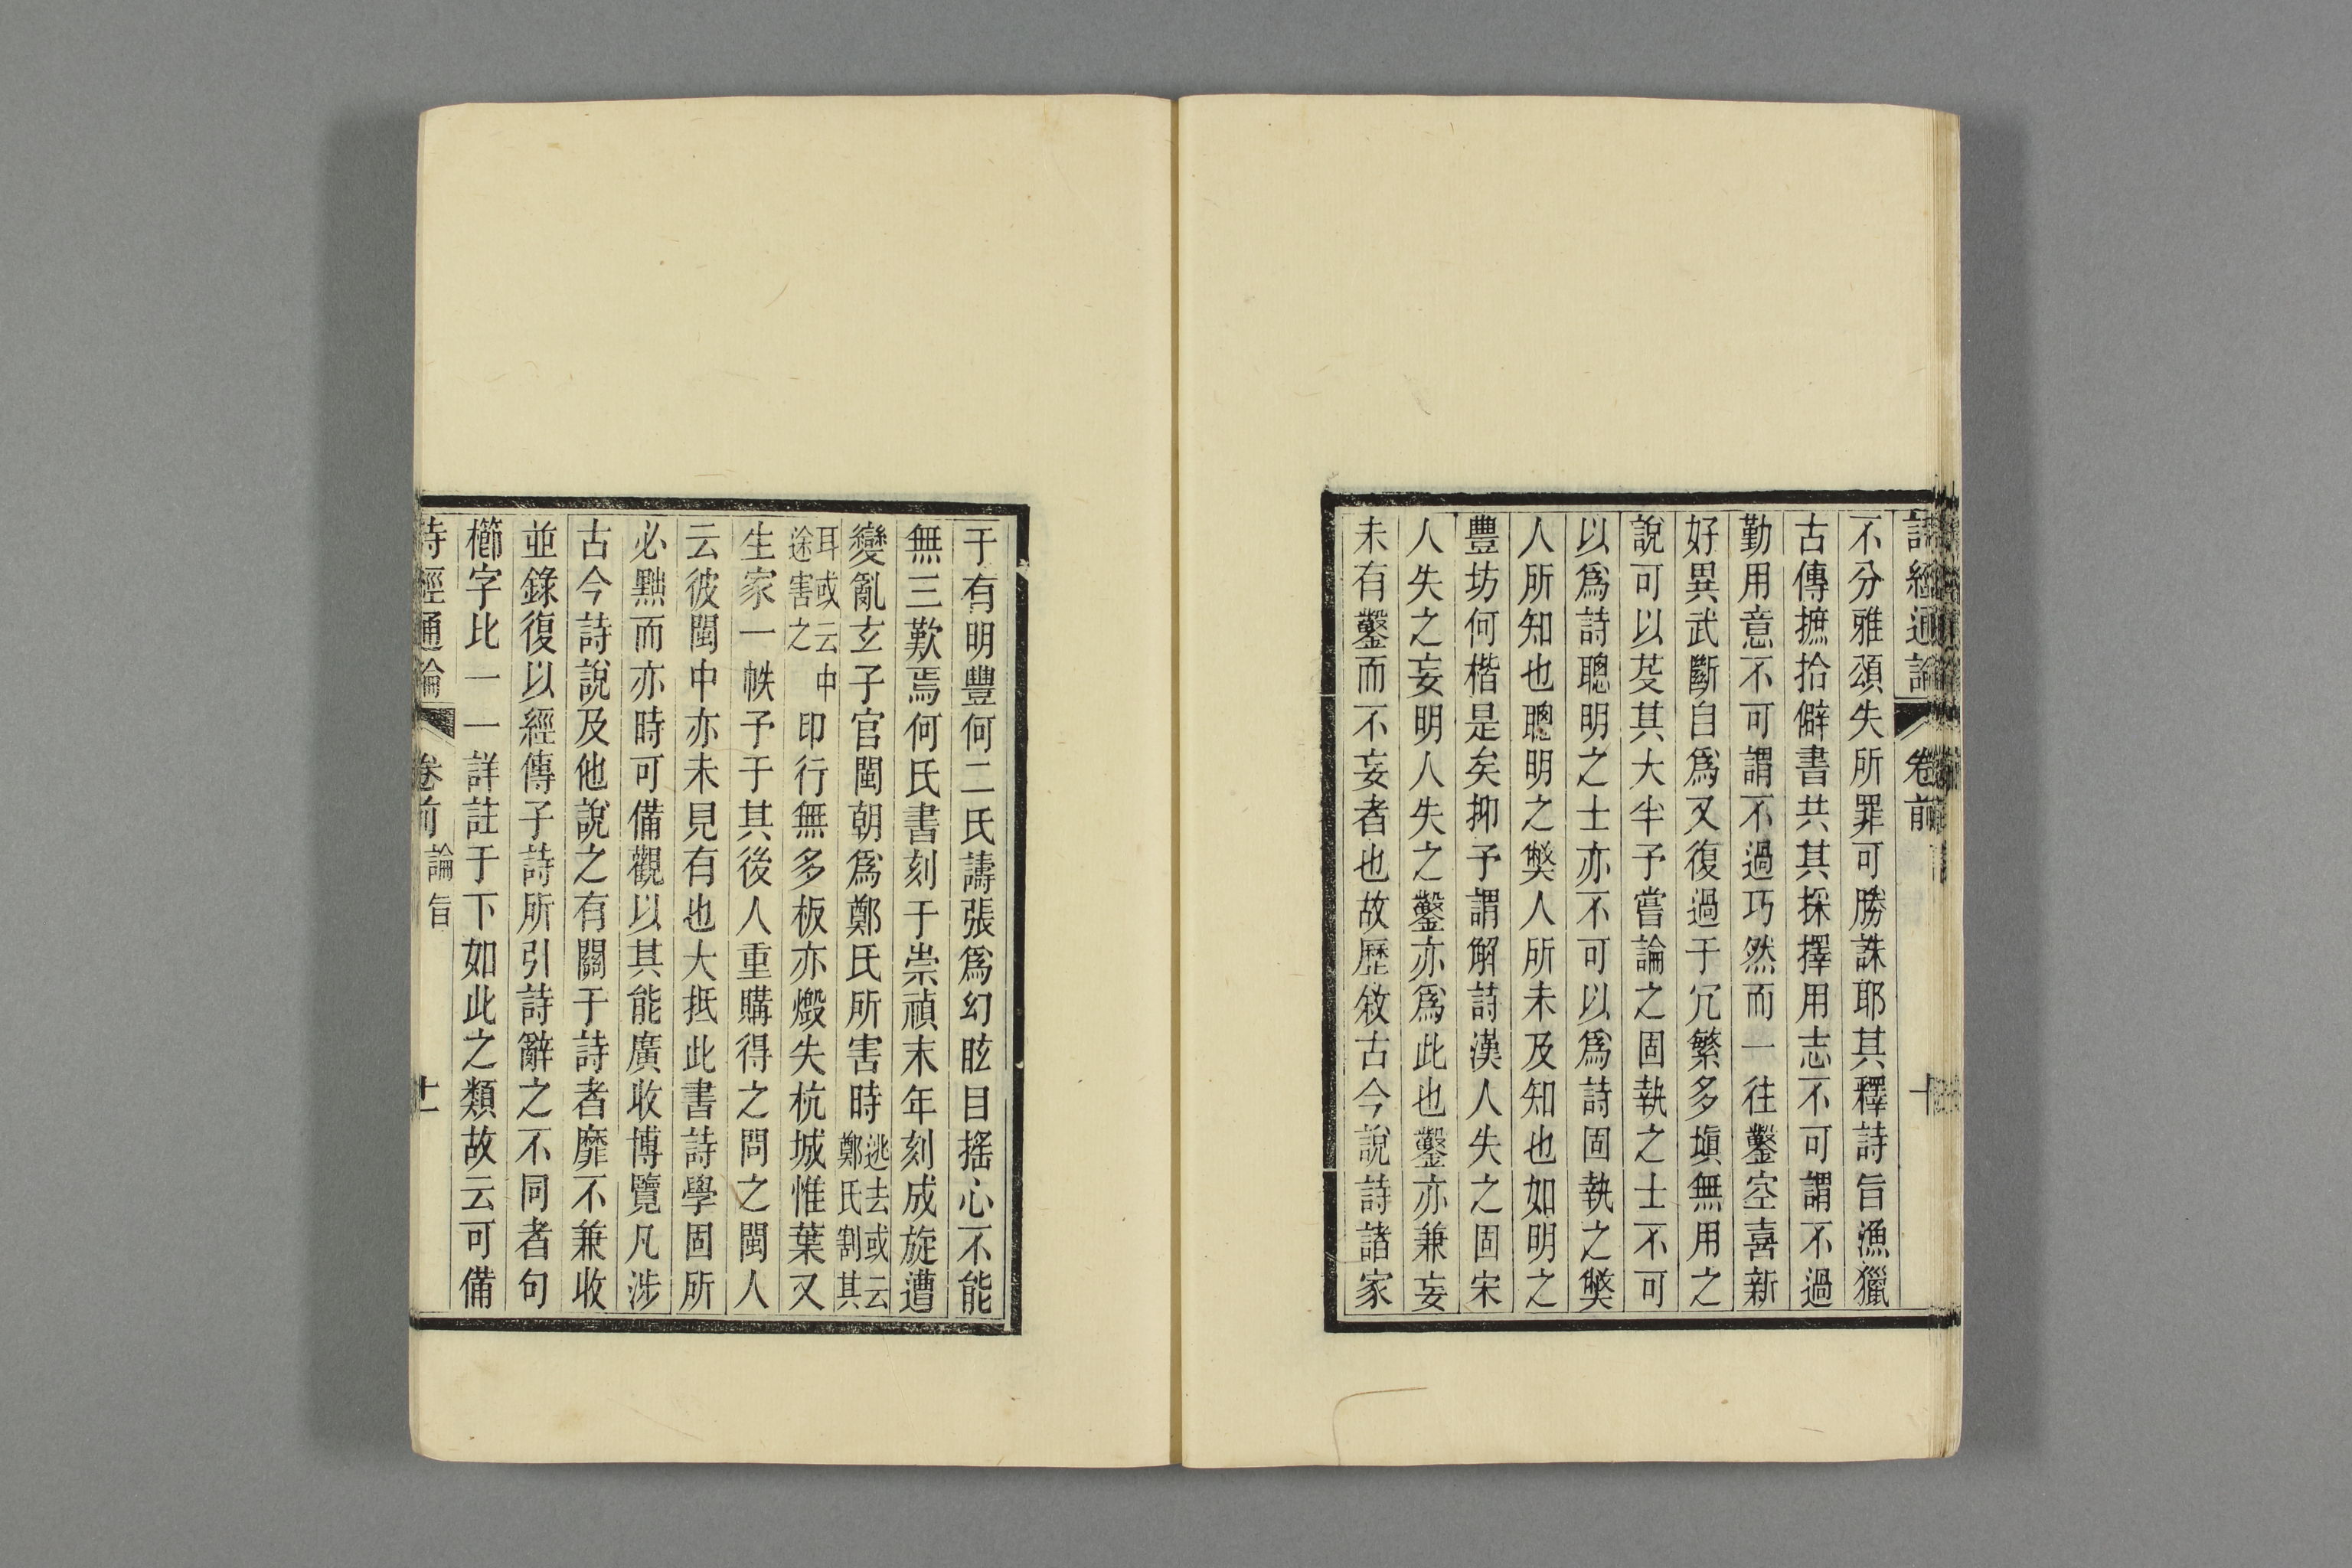 詩經通論 卷前 十
不分雅頌失所罪可勝誅耶其釋詩旨漁獵
古傳摭拾僻書共其採擇用志不可謂不過
勤用意不可謂不過巧然而一往鑿空喜新
好異武斷自爲又復過于冗繁多塡無用之
說可以芟其大半予嘗論之固執之士不可
以爲詩聰明之士亦不可以爲詩固執之獘
人所知也聰明之獘人所未及知也如明之
豐坊何楷是矣抑予謂解詩漢人失之固宋
人失之妄明人失之鑿亦爲此也鑿亦兼妄
未有鑿而不妄者也故歷敘古今說詩諸家
于有明豐何二氏譸張爲幻眩目搖心不能
無三歎焉何氏書刻于崇禎末年刻成旋遭
變亂玄子官閩朝爲鄭氏所害時逃去或云鄭氏割其
耳或云中途害之 印行無多板亦燬失杭城惟葉又
生家一帙予于其後人重購得之問之閩人
云彼閩中亦未見有也大抵此書詩學固所
必黜而亦時可備觀以其能廣收博覽凡涉
古今詩說及他說之有關于詩者靡不兼收
並錄復以經傳子詩所引詩辭之不同者句
櫛字比一一詳註于下如此之類故云可備
詩經通論 卷前 論旨 十一